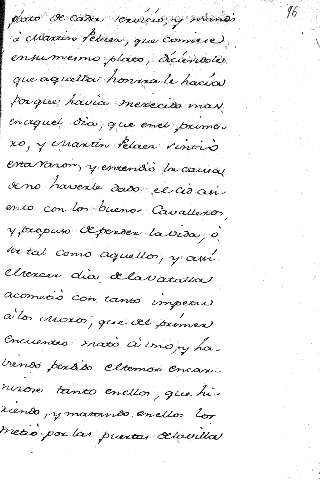 96
plato de cada servicio, y mandó
à Martin Pelaez, que comiese
en su mismo plato, diciendole
que aquella honrra le hacia
porque havia merecido mas
en aquel dia, que en el prime-
ro, y Martin Pelaez sintió
esta razon, y entendió la causa
de no haverle dado el Cid asi-
ento con los buenos Cavalleros,
y propuso de perder la vida, ó
ser tal como aquellos, y assi
el tercer dia de la vatalla
acometió con tanto impetu
à los Moros, que del primer
encuentro mató à uno, y ha-
viendo perdido el temor encar-
nizose tanto en ellos, que hi-
riendo, y matando en ellos los
metió por las puertas de la villa